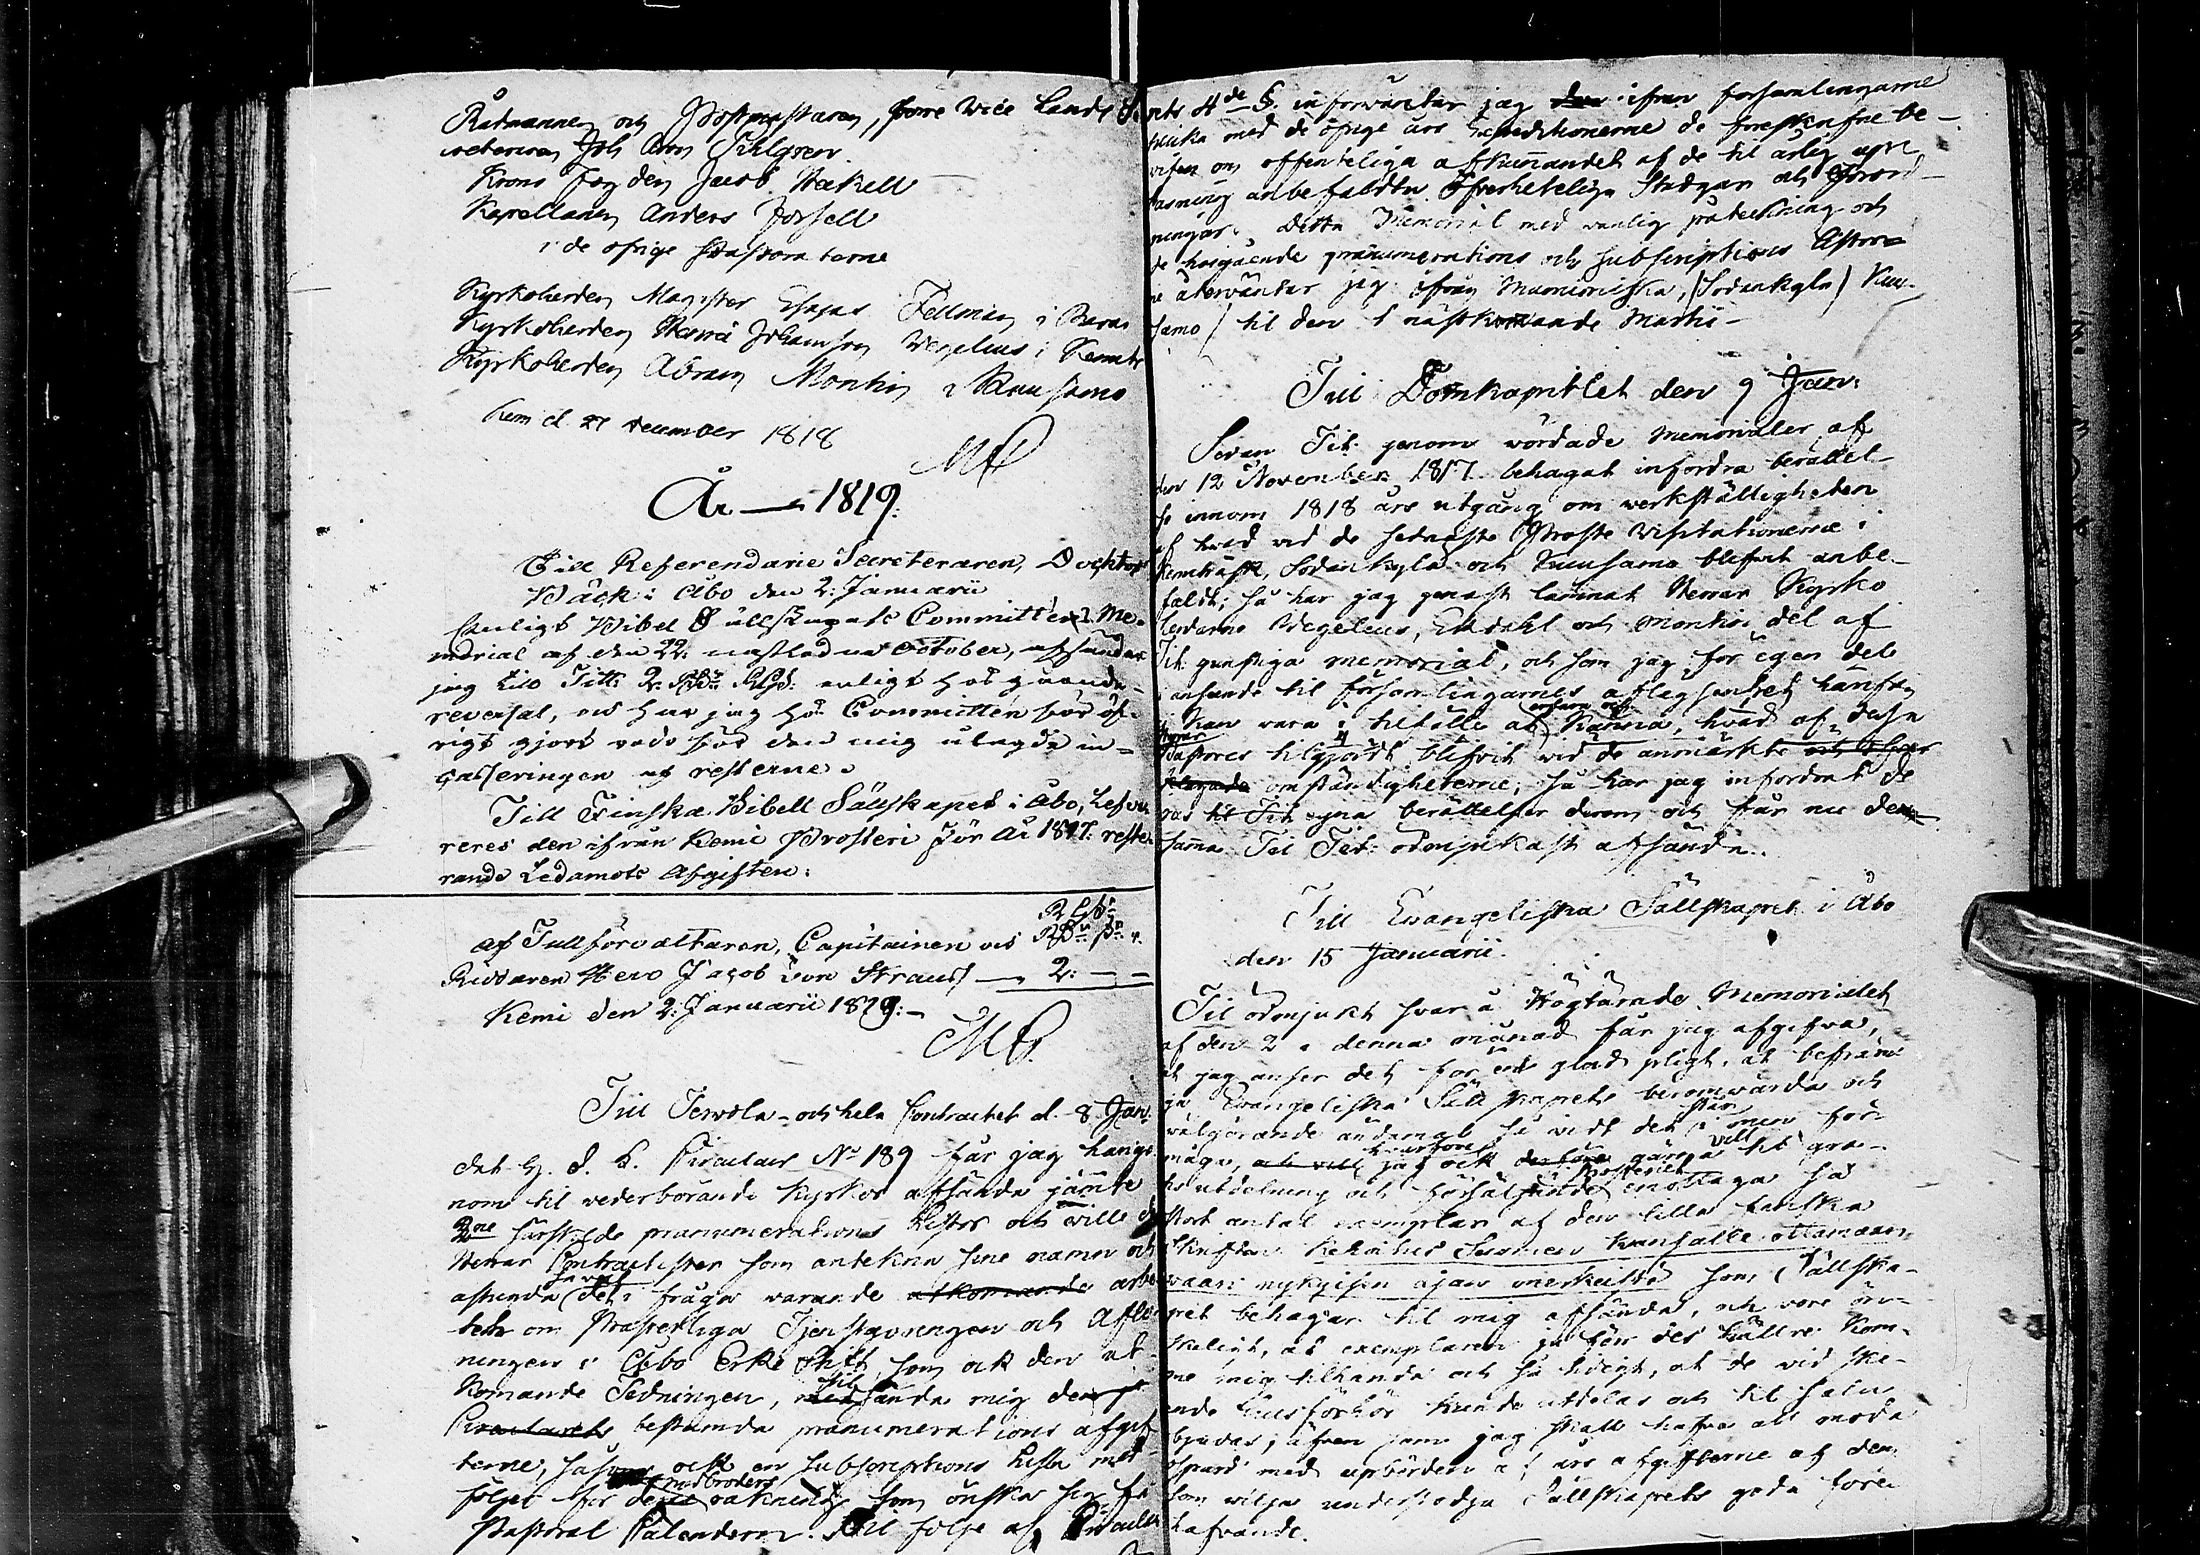 Rådmannen och Postmästaren, förre Vice Lands Se
creteraren Joh Aron Pihlgren
Krono Fogden Jacob Häkell
Kapellanen Anders Forsell
i de öfrige Pastoraterne
Kyrkoherden Magister Esajas Fellman i
Kyrkoherden Herr Johansson Wegelius i Kemitr
Kyrkoherden Abram Montin i Kuusamo
Kemi d. 27 December 1818
År 1819.
Till Referendarie Secreteraren, Docktor
Bäck i Åbo den 2: Januarii
Enligt Bibel Sällskapets Committéens Me-
morial af den 22: nästledne October, afsänder
jag till Titt: 2. enligt hos gående
reversal, och har jag hos Committén för öf-
rigt gjort reda för den mig ålagde in-
casseringen af resterne.
Till Finska Bibell Sällskapet i Åbo, Lefve
reres den ifrån Kemi Prosteri för År 1817. reste
rande Ledamots Afgiften:
af Tullförvaltaren, Capitainen och
Riddaren Herr Jacob von Strauss 2: — —
Kemi den 2: Januarii 1819: —
Till Tervola och hela Contractet d. 8 Jan.
Det H. D. C. Circulair No 189 får jag härige
nom til vederbörande Kyrkor afsända jämte
2ne särskilde pränumerations Listor och ville
Herrar Contractister som antekna sine namn och
astunda det i fråga varande atkomande arbe
tet om Prästerliga Tjenstgöringen och Aflö
ningen i Åbo Erke Stift, som ock den at
komande Tidningen, til sända mig den
Circulairets bestämda pränumerations afgif
terne, såsom ock en subscriptions Lista med
följer för medbröder som önska sig få
Pastoral Calendern. Til följe af Circulai
rets 4de §. inforväntar jag den ifrån församlingarne
lika med de öfrige års Expeditionerne de föreskrifne be-
visen om offenteliga afkunnandet af de til årlig upl
äsning anbefaldta Öfverhetelige Stadgar och Förord-
ningar. Detta Memorial med vanlig påtekning och
de hosgående pränumerations och subscriptions Listor
ne återväntar jag ifrån (Sodankyla) Kuu-
samo / til den 1 nästkommande Martii —
Till Domkapitlet den 9 Jan:
Sedan Tit. genom vördade Memorialer af
den 12 November 1817 behagat infordra berättel-
se innom 1818 års utgång om verkställigheten
af hvad vid de sednaste Proste Visitationerne i
Kemiträsk, Sodankylä och Kuusamo blifvit anbe-
faldt; så har jag genast lämnat Herrar Kyrko
herdarne Wegelius, Ekdahl och Montin del af
Tit. gunstiga memorial, och som jag för egen del
i anseende til församlingarnes aflägsenhet
kan vara i tilfälle at känna, hvad af desse
Herrar Pastores tilgjordt blifvit vid de anmärkte
omständigheterne; så har jag infordrat de
ras til Tit. egna berättelser derom och får nu den-
samma Til Tit: ödmjukast afsända.
Till Evangeliska Sällskapet i Åbo
den 15 Januarii.
Til ödmjukt svar å Högtärade Memorialet
af den 2 i denna månad får jag afgifva,
at jag anser det för en glad pligt, at befräm
ja Evangeliska Sällskapets berömvärda och
välgörande ändamål så vidt det står i min för-
måga, hvarföre jag ock gärna vill til gra-
tis utdelning och försäljande i Prosteriet emottaga så
stort antal exemplar af den lilla finska
Skriften Kehoitus Suomen kansalle ottamaan
vaari nykyisen ajan merkeistä som Sällska-
pet behagar til mig afsända, och vore ön-
skeligt, at exemplaren ju förr des hällre kom-
me mig tilhanda och så tidigt, at de vid ske-
ende husförhör kunde utdelas och til salu
bjudas, äfven som jag skall hafva all möda
ospard med upbörden af års afgifterne af dem
som vilja understödja Sällskapets goda före
hafvande.